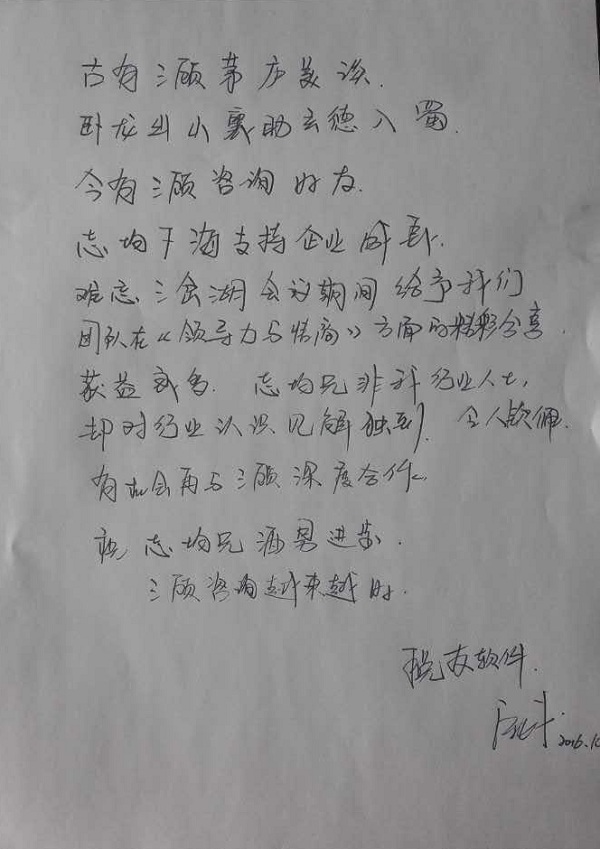 古有三顾茅庐美谈.
卧龙出山襄助玄德入蜀.
今有三顾咨询好友.
志均下海支持企业成长.
难忘三舍湖会议期间给予我们
团队在《领导力与情商》方面的精彩分享.
获益颇多. 志均兄非我行业人士,
却对行业认识见解独到, 令人钦佩.
有机会再与三顾深度合作.
祝 志均兄酒男进步.
三顾咨询越来越好.
税友软件.
2016.10